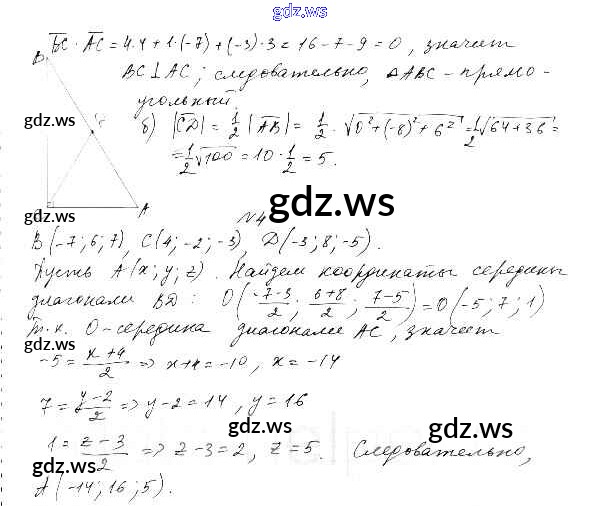 gdz.ws
B̅C̅ · A̅C̅ = 4·4 + 1·(-7) + (-3)·3 = 16 - 7 - 9 = 0, значит
B
BC ⊥ AC; следовательно, ΔABC - прямо-
угольный.
gdz.ws
gdz.ws
б) |C̅D̅| = 1/2 |A̅B̅| = 1/2 · √(0² + (-8)² + 6²) = 1/2 √(64+36) =
= 1/2 √100 = 10 · 1/2 = 5.
A
gdz.ws
№4
B(-7; 6; 7), C(4; -2; -3), D(-3; 8; -5).
Пусть A(x; y; z). Найдем координаты середины
диагонали BD: O((-7-3)/2; (6+8)/2; (7-5)/2) = O(-5; 7; 1)
Т.к. O - середина диагонали AC, значит
gdz.ws
gdz.ws
-5 = (x+4)/2 ⇒ x+4 = -10, x = -14
7 = (y-2)/2 ⇒ y-2 = 14, y = 16
gdz.ws
gdz.ws
1 = (z-3)/2 ⇒ z-3 = 2, z = 5. Следовательно,
gdz.ws
A(-14; 16; 5).
gdz.ws